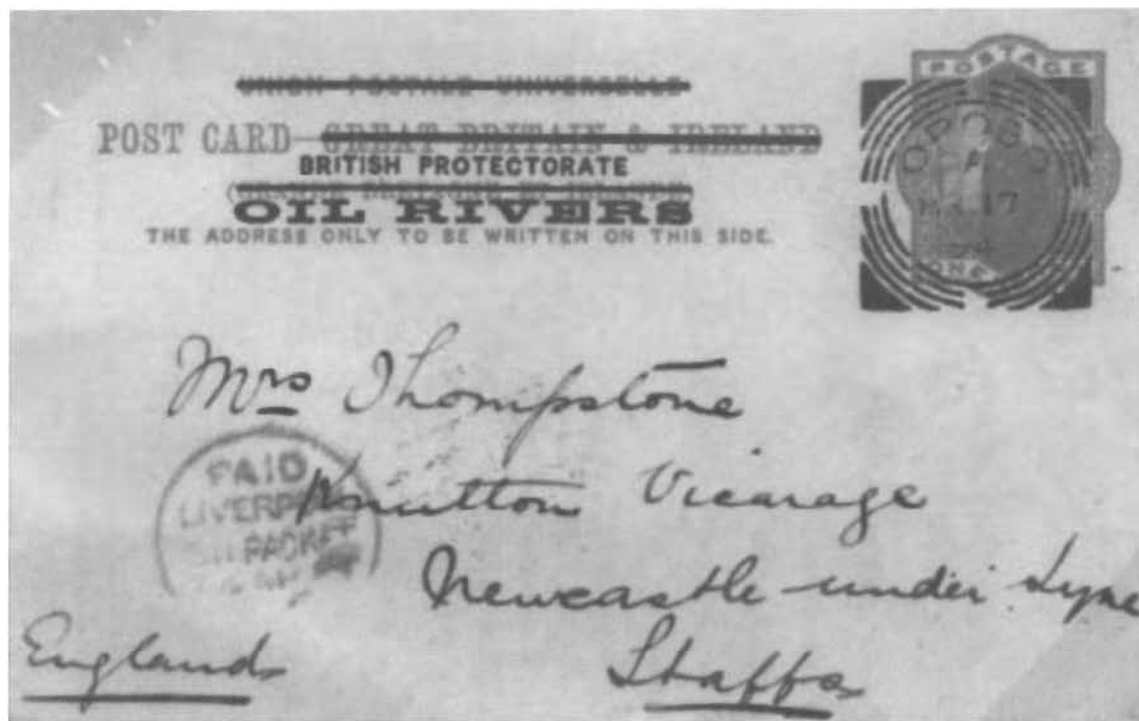 UNION POSTALE UNIVERSELLE
POST CARD GREAT BRITAIN & IRELAND
BRITISH PROTECTORATE
OIL RIVERS
THE ADDRESS ONLY TO BE WRITTEN ON THIS SIDE.
POSTAGE
ONE
OPOBO
17
Mrs Thompstone
Knutton Vicarage
Newcastle-under Lyme
Staffs
England
PAID
LIVERPOOL
PACKET